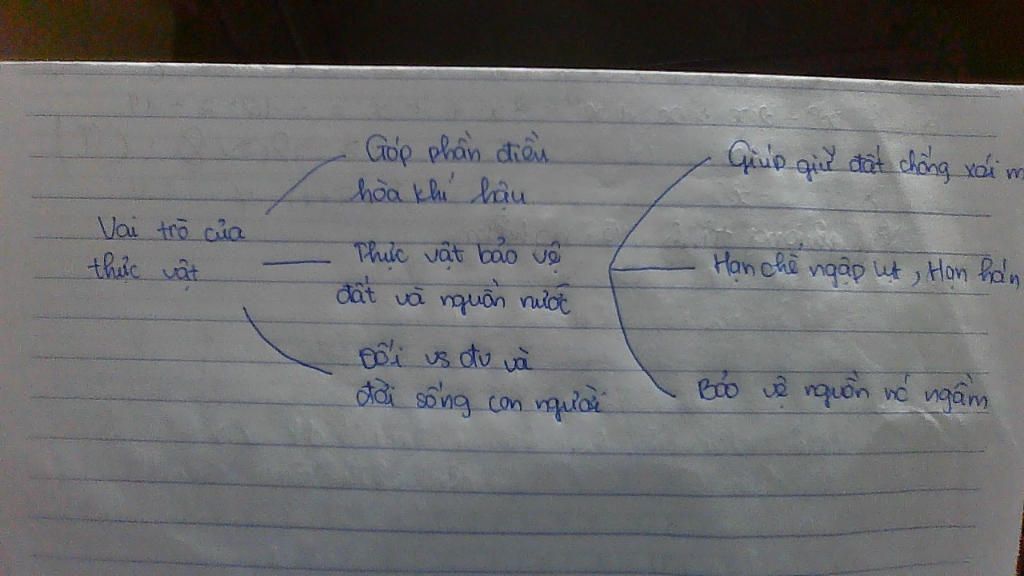 Vai trò của
thực vật
Góp phần điều
hòa khí hậu
Thực vật bảo vệ
đất và nguồn nước
Đối vs đv và
đời sống con người
Giúp giữ đất chống xói m
Hạn chế ngập lụt, Hạn hán
Bảo vệ nguồn nớ ngầm